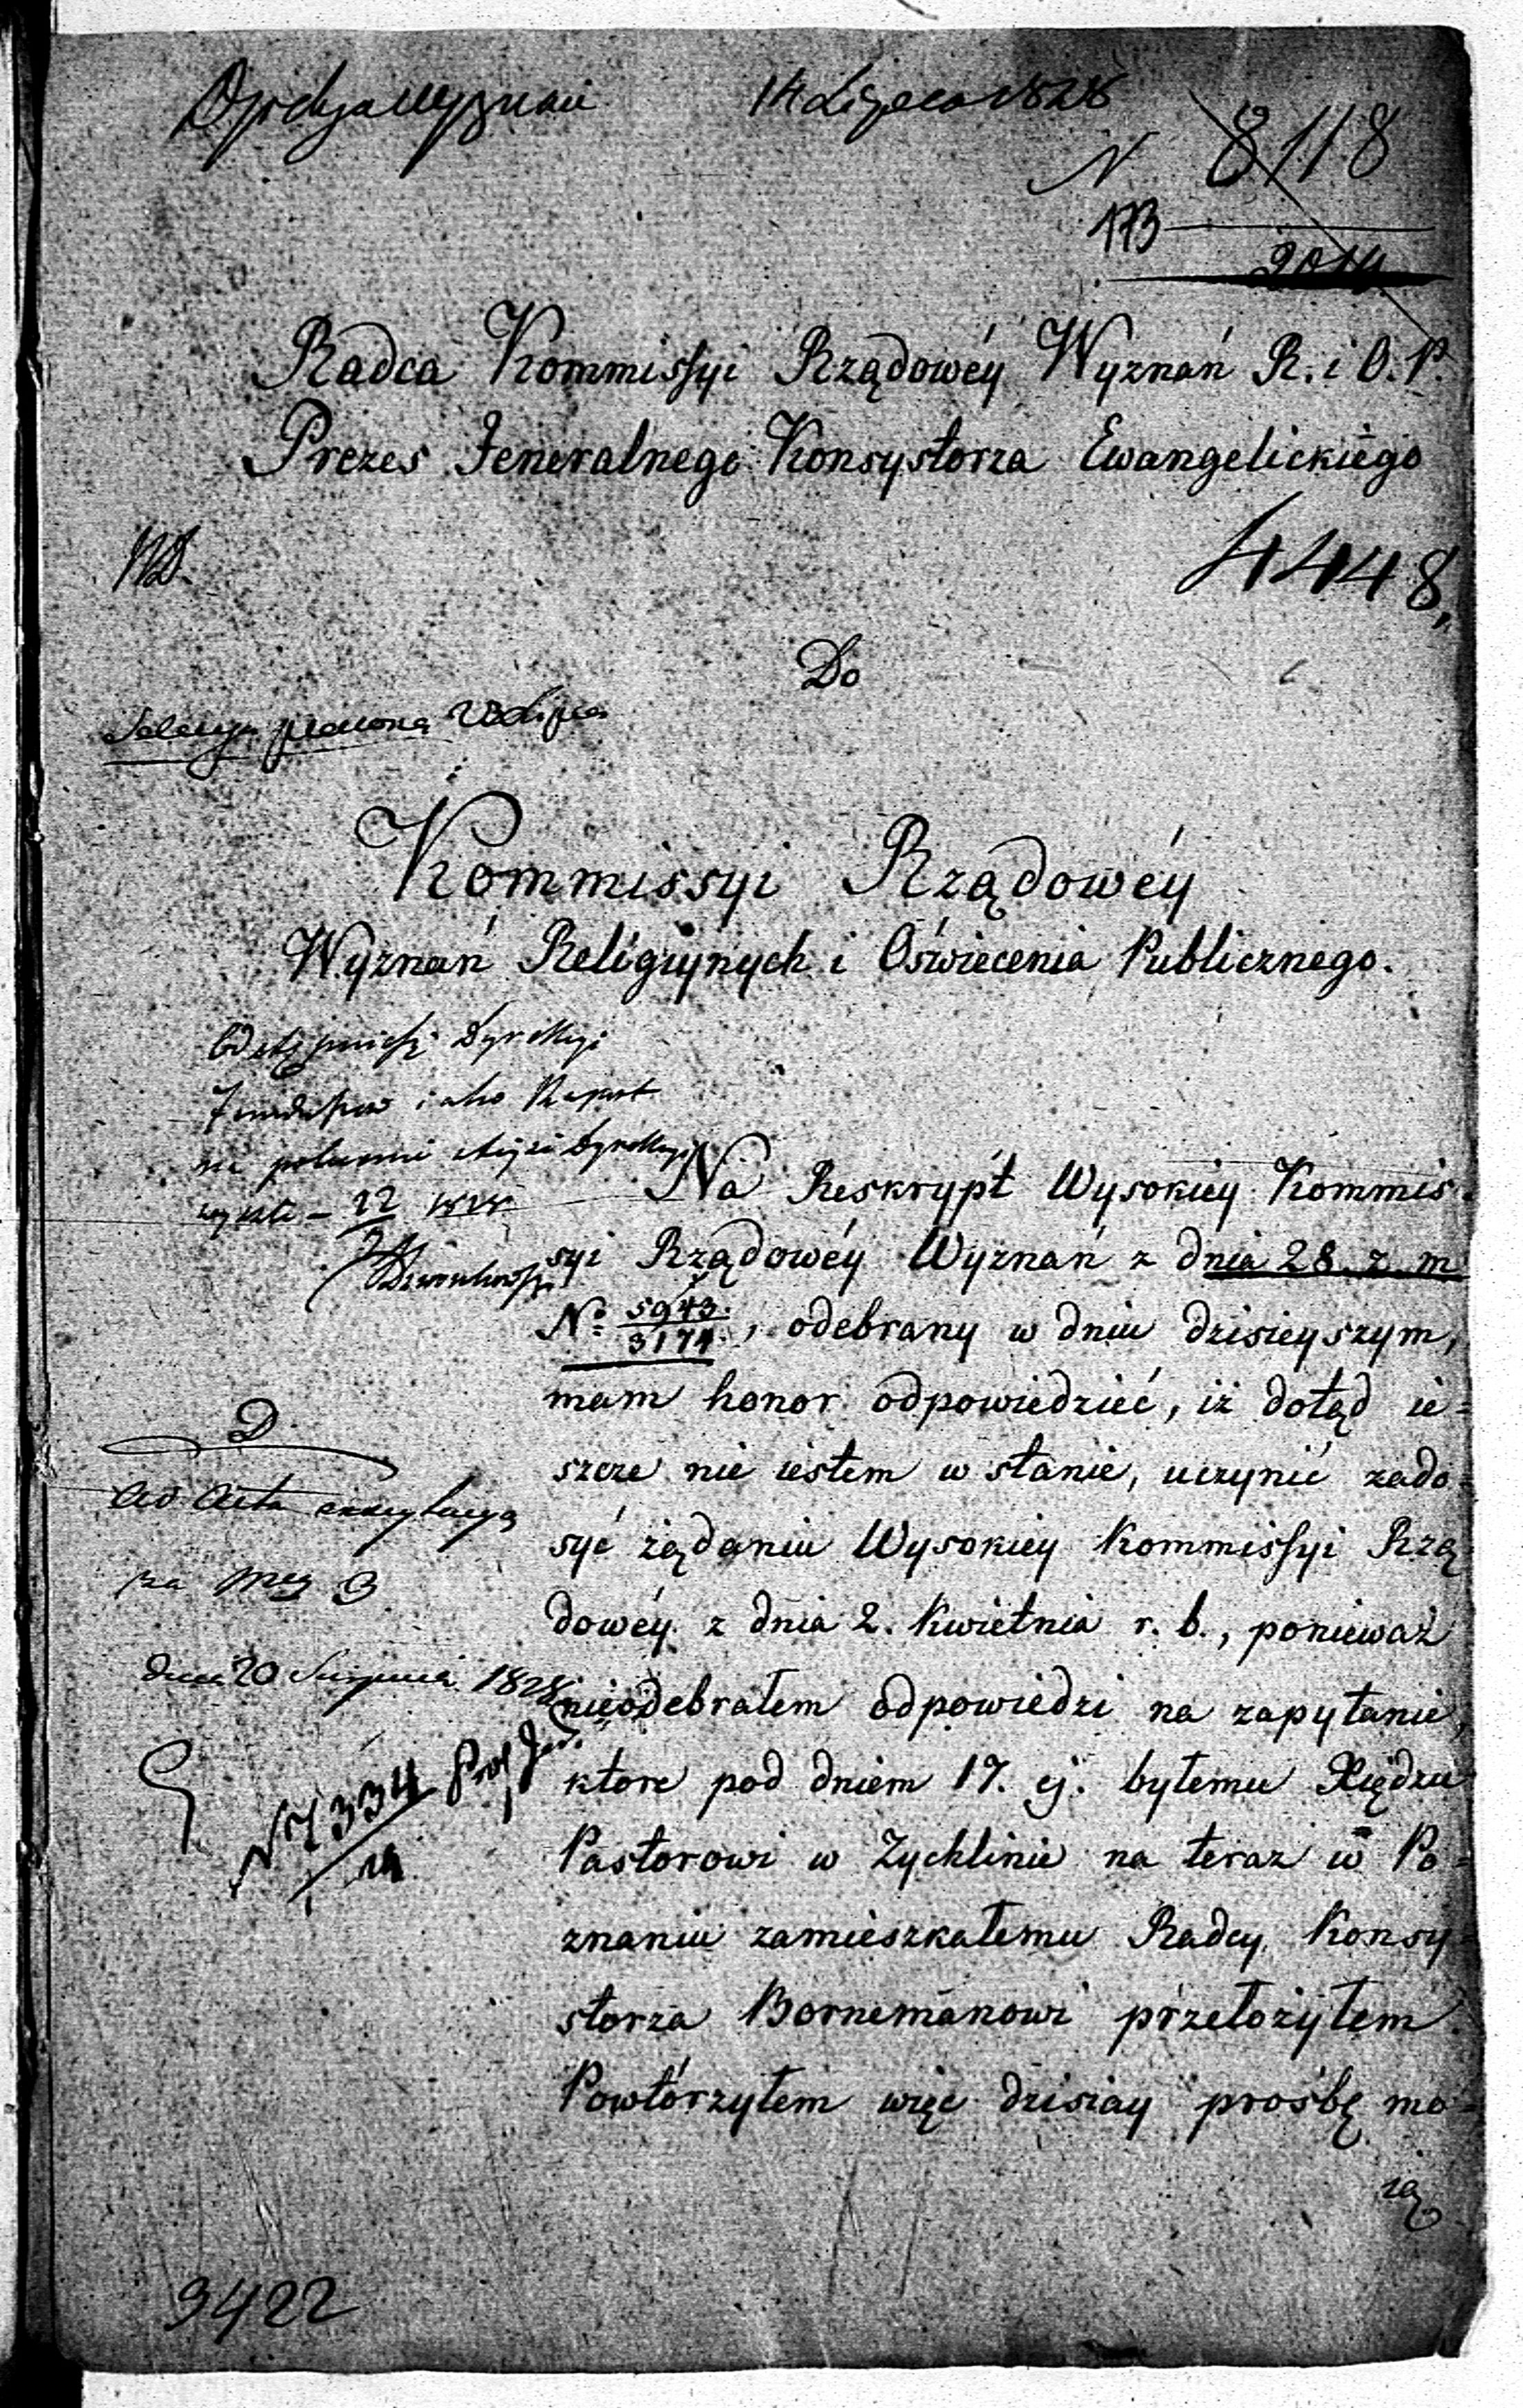 14 Lipca 1828
N 8118
173
2014
Radca Kommissyi Rządowéy Wyznań R. i O. P.
Prezes Jeneralnego Konsystorza Ewangelickiégo
4448
Do
23 Lipca
Kommissyi Rządowéy
Wyznań Religiynych i Oświecenia Publicznego.
Dyrekcyi
Funduszow iako Raport
na Dyrekcyi
22
Na Reskrypt Wysokiey Kommis
syi Rządowéy Wyznań z dnia 28. z. m
No: 5943. / 3174., odebrany w dniu dzisieyszym,
mam honor odpowiedzieć, iż dotąd ie=
szcze nie iestem w stanie, uczynić zado=
syć żądaniu Wysokiey Kommissyi Rzą
dowéy z dnia 2. Kwietnia r. b., ponieważ
nieodebrałem odpowiedzi na zapytanie,
ktore pod dniem 17. ej. byłemu Xiędzu
Pastorowi w Zychlinie na teraz w Po=
znaniu zamieszkałemu Radcy Konsy
storza Bornemanowi przełożyłem.
Powtórzyłem więc dzisiay prośbę mo=
ią
D.
ad acta
za 3
dnia 20 Sierpnia 1828
N 7334
9422